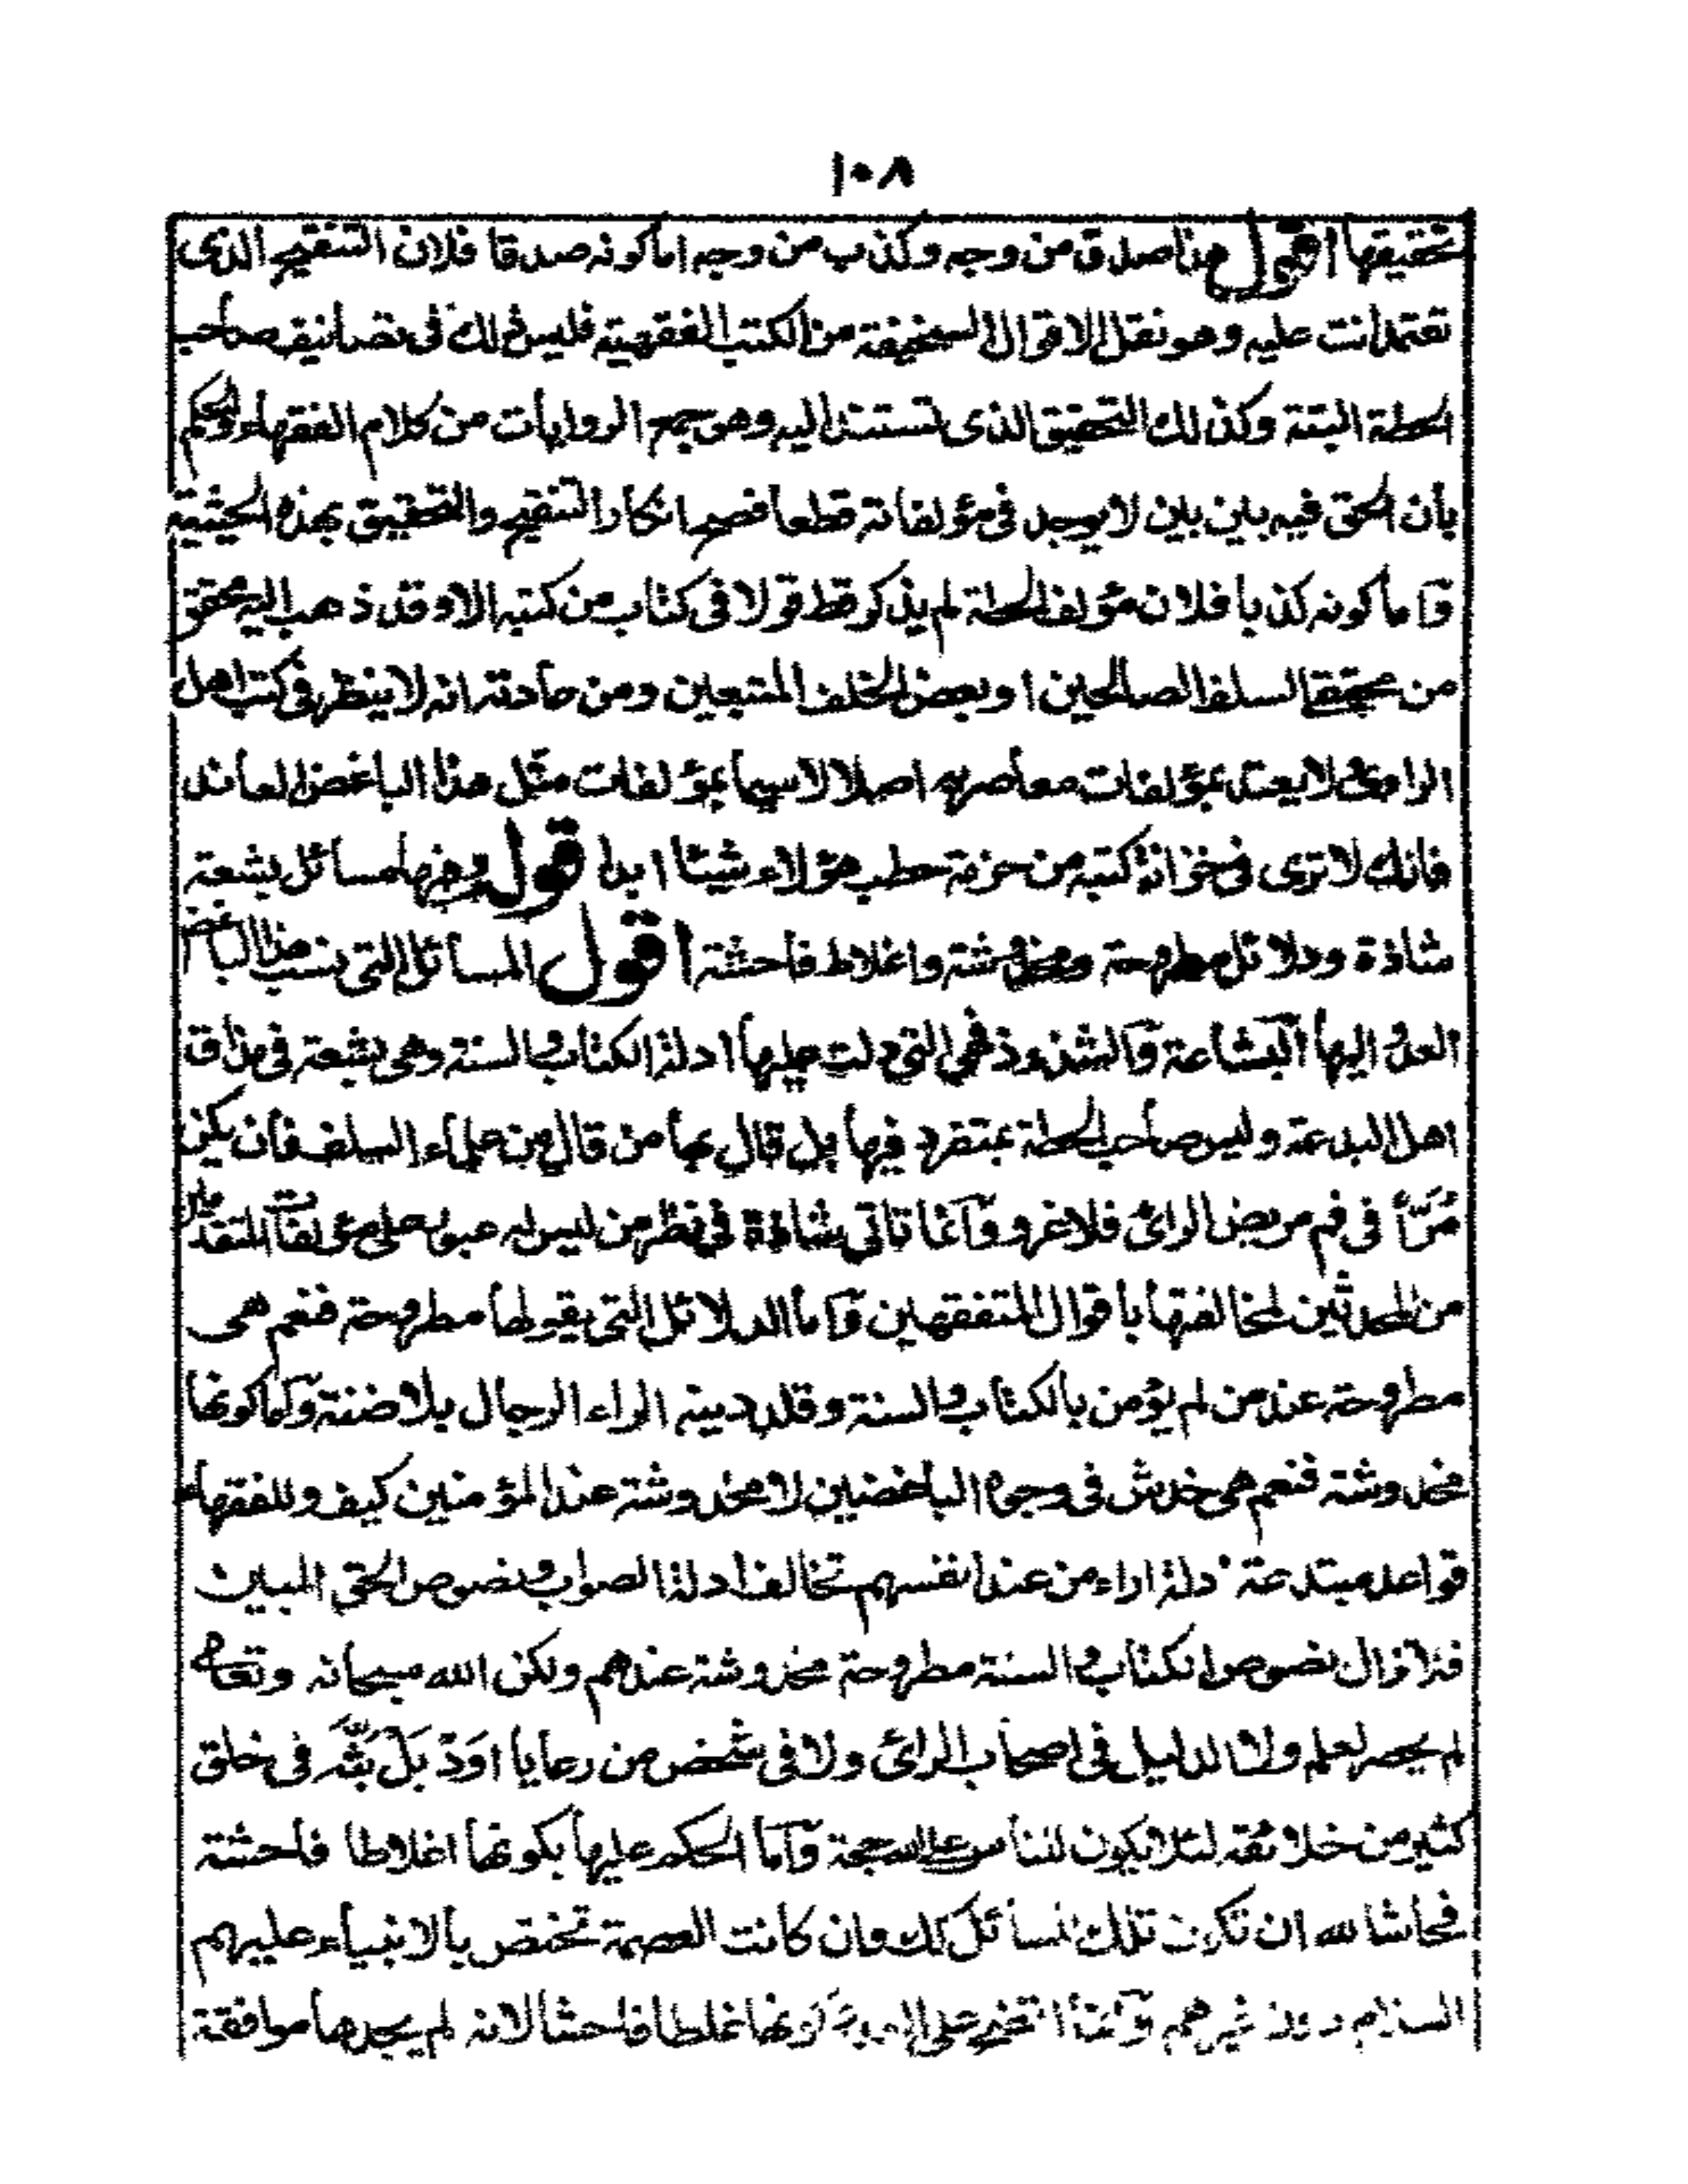 ١٠٨
تحقيقها اقول هذا صدق من وجه وكذب من وجه اما كونه صدقا فلان التنقيح الذى
تعتمد انت عليه وهو نقل الاقوال السخيفة من الكتب الفقهية فليس ذلك فى تصانيف صاحب
الحطة البتة وكذلك التحقيق الذى تستند اليه وهو جمع الروايات من كلام الفقهاء والحكم
بأن الحق فيه بين بين لا يوجد فى مؤلفاته قطعا فصح انكار التنقيح والتحقيق بهذه الحيثية
واما كونه كذبا فلان مؤلف الحطة لم يذكر قط قولا فى كتاب من كتبه الا وقد ذهب اليه محقق
من محققى السلف الصالحين او بعض الخلف المتبعين ومن عادته انه لا ينظر فى كتب اهل
الراى ولا يعتد بمؤلفات معاصريه اصلا لاسيما بمؤلفات مثل هذا الباغض المعاند
فانك لا ترى فى خزانة كتبه من حزمة حطب هؤلاء شيئا ابدا قول وفيها مسائل بشعة
شاذة ودلائل مطروحة ومخدوشة واغلاط فاحشة اقول المسائل التى نسب هذا الباغض
العدو اليها البشاعة والشذوذ فهى التى دلت عليها ادلة الكتاب والسنة وهى بشعة فى مذاق
اهل البدعة وليس صاحب الحطة بمتفرد فيها بل قال بها من قال من علماء السلف فان يكن
مُرّاً فى فم مريض الرائ فلا غرو وانما تاتى شاذة فى نظر من ليس له عبور على مؤلفات المتقدمين
من المحدثين لمخالفتها باقوال المتفقهين واما الدلائل التى يقولها مطروحة فنعم هى
مطروحة عند من لم يؤمن بالكتاب والسنة وقلد دينه اراء الرجال بلا ضنة واما كونها
مخدوشة فنعم هى خدش فى وجوه الباغضين لا مخدوشة عند المؤمنين كيف وللفقهاء
قواعد مبتدعة دلة اراء من عند انفسهم تخالف ادلة الصواب ونصوص الحق المبين
فلا تزال نصوص الكتاب والسنة مطروحة مخدوشة عندهم ولكن الله سبحانه وتعالى
لم يحصر لعلم ولا الدليل فى اصحاب الرائ ولا فى شخص من رعايا اود بل بثّه فى خلق
كثير من خلائقه لئلا يكون للناس على الله حجة واما الحكم عليها بكونها اغلاطا فاحشة
فحاشا لله ان تكون تلك المسائل كك وان كانت العصمة تختص بالانبياء عليهم
السلام دون غيرهم وانما كونها غلطا فاحشا لانه لم يجدها موافقة